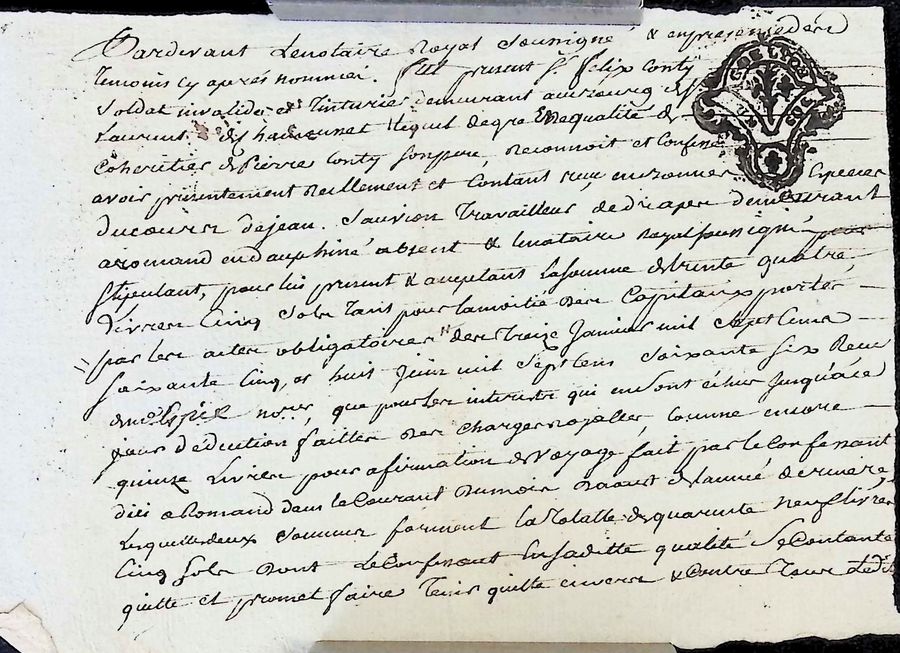 Pardevant Lenotaire Royal Soussigné & en presence des
temoins cy aprés nommés. fut present Sr. felix Conty
Soldat invalide et Tinturier demeurant au bourg de St
Laurent Lequel de gré En qualité de
Coheritier de Pierre Conty Son pere, Reconnoit et Confesse
avoir presentement Reellement et Contant reçu en bonnes Especes
du cours de jean Sauvion Travailleur de drapes demeurant
a romand en dauphiné absent & le notaire Royal soussigné
Stipulant, pour lui present & acceptant La somme de trente quatre
Livres Cinq Sols Tant pour la moitié des Capitaux portés
par les actes obligatoires des treize Janvier mil Sept Cens
Soixante Cinq, et huit Juin mil Sept Cens Soixante Six Reçu
nore, que pour les interets qui en sont échus jusqu'à ce
jour déduction faitte des charges royalles, comme encore
quinze Livres pour afirmation de Voyage fait par le Confessant
a Romand dans le Courant du mois d'aoust de l'année derniere
Lesquelles deux Sommes forment la Totalle de quarante neuf Livres
Cinq Sols dont Le Confessant En saditte qualité Se Contante
quitte et promet faire Tenir quitte envers & Contre Tous Ledit